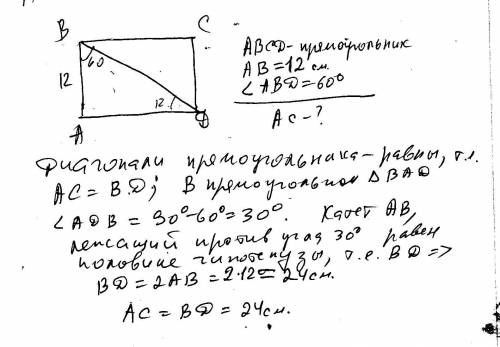 B
C
60
12
12
A
D
ABCD - прямоугольник
AB = 12 см.
∠ABD = 60°
AC - ?
Диагонали прямоугольника - равны, т.е.
AC = BD; В прямоугольном △BAD
∠ADB = 30°-60° = 30°. Катет AB,
лежащий против угла 30° равен
половине гипотенузы, т.е. BD =>
BD = 2AB = 2·12 = 24 см.
AC = BD = 24 см.